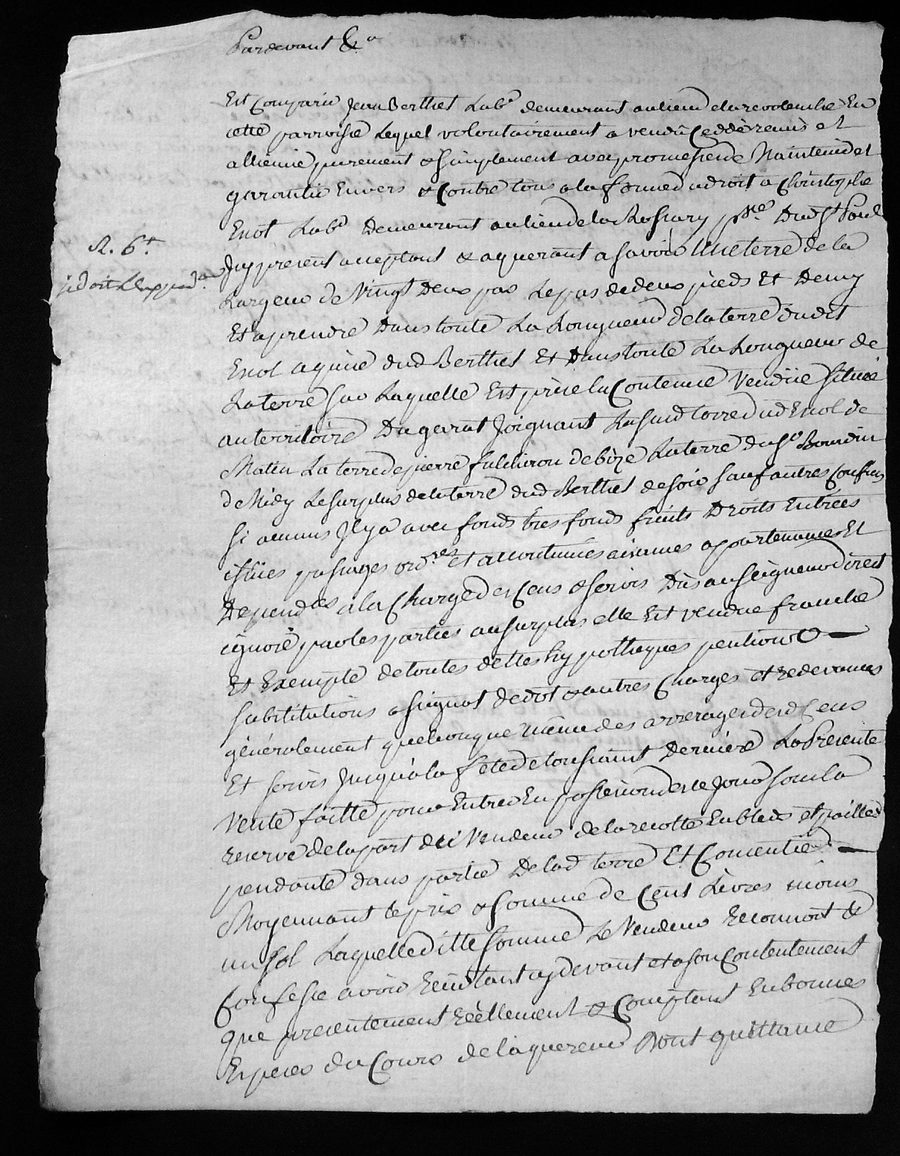 Pardevant &a
Est Comparu Jean Berthet Labr demeurant au lieu de En
cette parroisse Lequel volontairement a vendu Ceddé remis et
allienné purement & simplement avec promesse de Maintenir et
garantir Envers & Contre tous a la forme du droit a Christophe
Enot Labr Demeurant au lieu de la psse Dud St Paul
R. 6lt
Icy present acceptant & aquerant a savoir Une terre de la
Largeur de Vingt Deux pas Le pas de deux pieds Et Demy
Et a prendre Dans toute La Longueur de la terre dudit
Enot aquise dud Berthet Et Dans toute La Longueur de
La terre sur Laquelle Est prise la Contenue Vendüe scituée
au territoire Du garat Joignant La susd terre dud Enot de
Matin La terre de pierre fulchiron de bize La terre du Sr Bourdin
de Midy Le surplus de la terre dud Berthet de soir sauf autres Confins
si aucuns Il y a avec fonds tres fonds fruits Droits Entrées
issües passages ordres et accoutumés aisances appartenances Et
Dependces a la Charge des Cens & servis Dus au seigneur direct
ignoré par les parties au surplus elle Est vendue franche
Et Exempte de toutes dettes hypotheques pentions
substitutions assignat de dot & autres Charges et redevances
générolement quelconque même des arrerages desd Cens
Et servis Jusqu'a la fête de toussaint Derniere La Presente
Vente faitte pour Entrer En possession des ce Jour sous la
reserve de la part du Vendeur de la recolte En bleds et pailles
pendante dans partie De lad terre Et Consentie
Moyennant le prix & somme de Cent Livres moins
un sol Laquelle ditte somme Le Vendeur Reconnoit &
Confesse avoir Reçu tant cy devant et a son Contentement
que presentement Réellement & Comptant En bonnes
Especes du Cours de l'aquereur Dont quittance